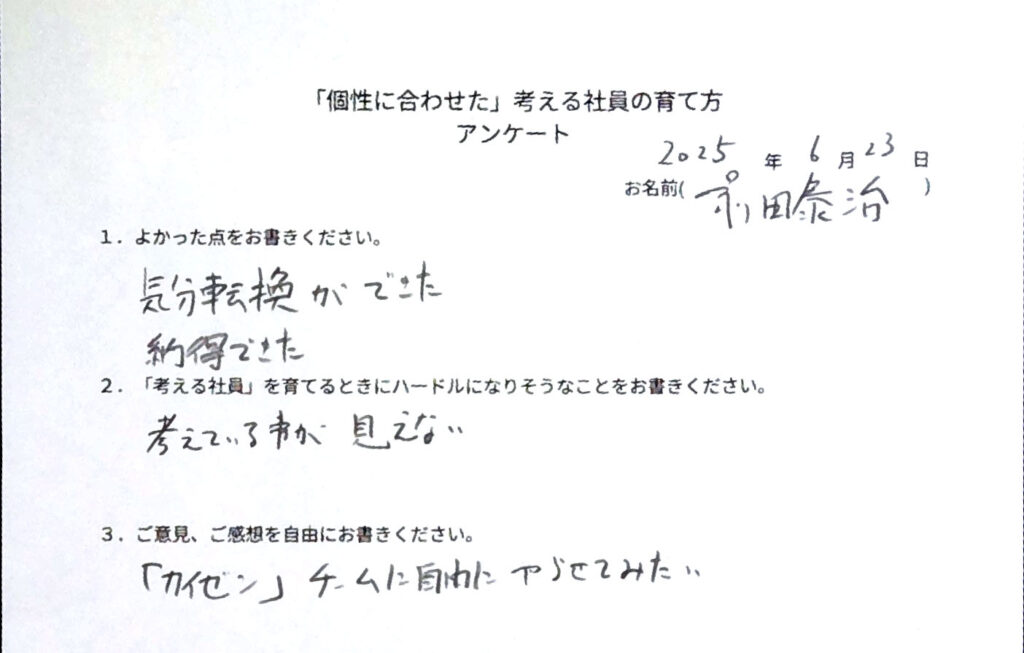 「個性に合わせた」考える社員の育て方
アンケート
2025 年 6 月 23 日
お名前( 前田泰治 )
1．よかった点をお書きください。
気分転換ができた
納得できた
2．「考える社員」を育てるときにハードルになりそうなことをお書きください。
考えている事が 見えない
3．ご意見、ご感想を自由にお書きください。
「カイゼン」チームに自由にやらせてみたい